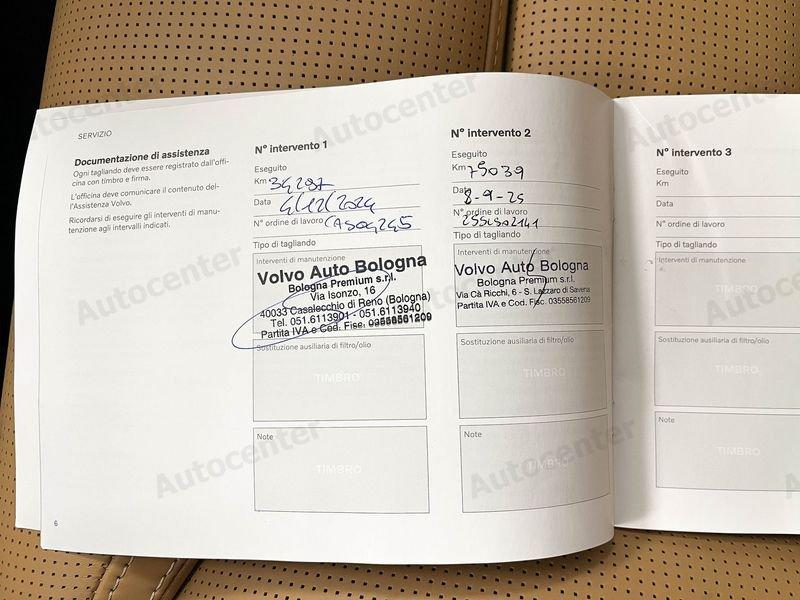 SERVIZIO
Documentazione di assistenza
Ogni tagliando deve essere registrato dall'offi-
cina con timbro e firma.
L'officina deve comunicare il contenuto del-
l'Assistenza Volvo.
Ricordarsi di eseguire gli interventi di manu-
tenzione agli intervalli indicati.
N° intervento 1
Eseguito
Km 34287
Data 4/12/2024
N° ordine di lavoro
Tipo di tagliando
Interventi di manutenzione
Volvo Auto Bologna
Bologna Premium s.r.l.
Via Isonzo, 16
40033 Casalecchio di Reno (Bologna)
Tel. 051.6113901 - 051.6113940
Partita IVA e Cod. Fisc. 03558561209
Sostituzione ausiliaria di filtro/olio
TIMBRO
Note
TIMBRO
N° intervento 2
Eseguito
Km 75039
Data 8-9-25
N° ordine di lavoro
Tipo di tagliando
Interventi di manutenzione
Volvo Auto Bologna
Bologna Premium s.r.l.
Via Cà Ricchi, 6 - S. Lazzaro di Savena
Partita IVA e Cod. Fisc. 03558561209
Sostituzione ausiliaria di filtro/olio
TIMBRO
Note
TIMBRO
N° intervento 3
Eseguito
Km
Data
N° ordine di lavoro
Tipo di tagliando
Interventi di manutenzione
TIMBRO
Sostituzione ausiliaria di filtro/olio
TIMBRO
Note
TIMBRO
6
Autocenter
Autocenter
Autocenter
Autocenter
Autocenter
Autocenter
Autocenter
Autocenter
Autocenter